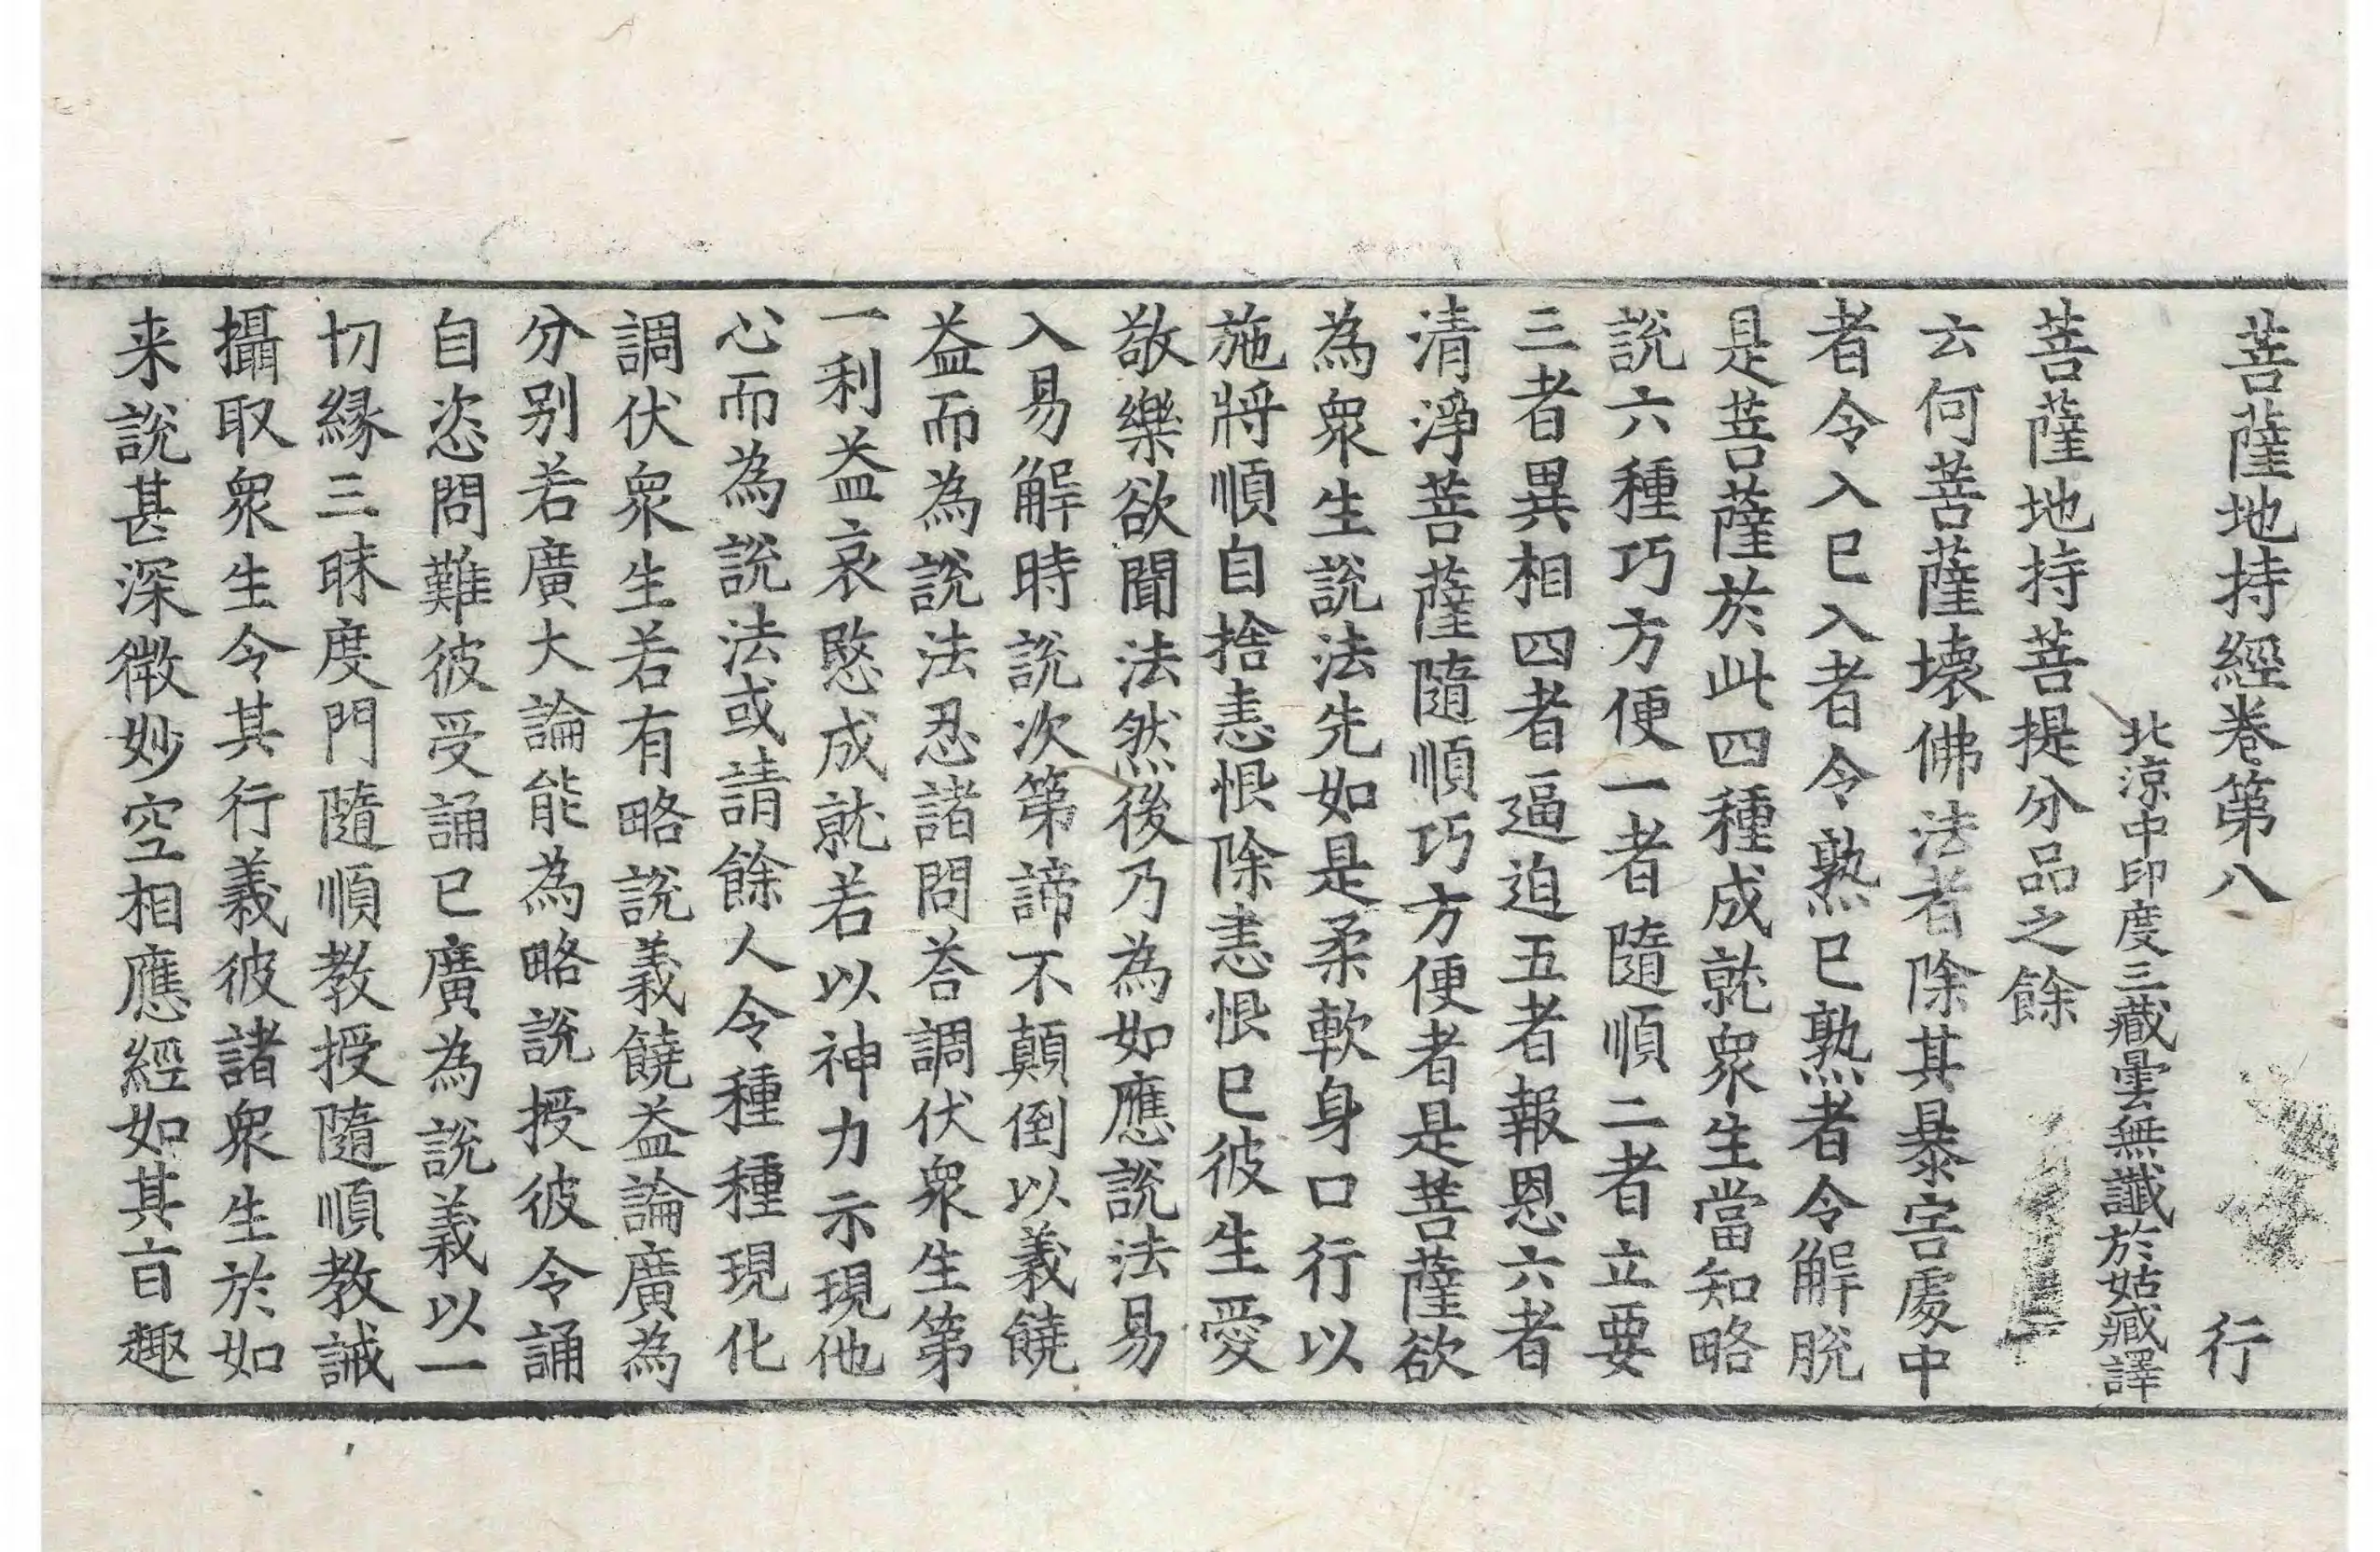 菩薩地持經卷第八　行
北涼中印度三藏曇無讖於姑臧譯
菩薩地持菩提分品之餘
云何菩薩壞佛法者除其暴害處中
者令入已入者令熟已熟者令解脫
是菩薩於此四種成就衆生當知略
說六種巧方便一者隨順二者立要
三者異相四者逼迫五者報恩六者
清淨菩薩隨順巧方便者是菩薩欲
為衆生說法先如是柔軟身口行以
施將順自捨恚恨除恚恨已彼生愛
敬樂欲聞法然後乃為如應說法易
入易解時說次第諦不顛倒以義饒
益而為說法忍諸問荅調伏衆生第
一利益哀愍成就若以神力示現他
心而為說法或請餘人令種種現化
調伏衆生若有略說義饒益論廣為
分别若廣大論能為略說授彼令誦
自恣問難彼受誦已廣為說義以一
切緣三昧度門隨順教授隨順教誡
攝取衆生令其行義彼諸衆生於如
来說甚深微妙空相應經如其㫖趣